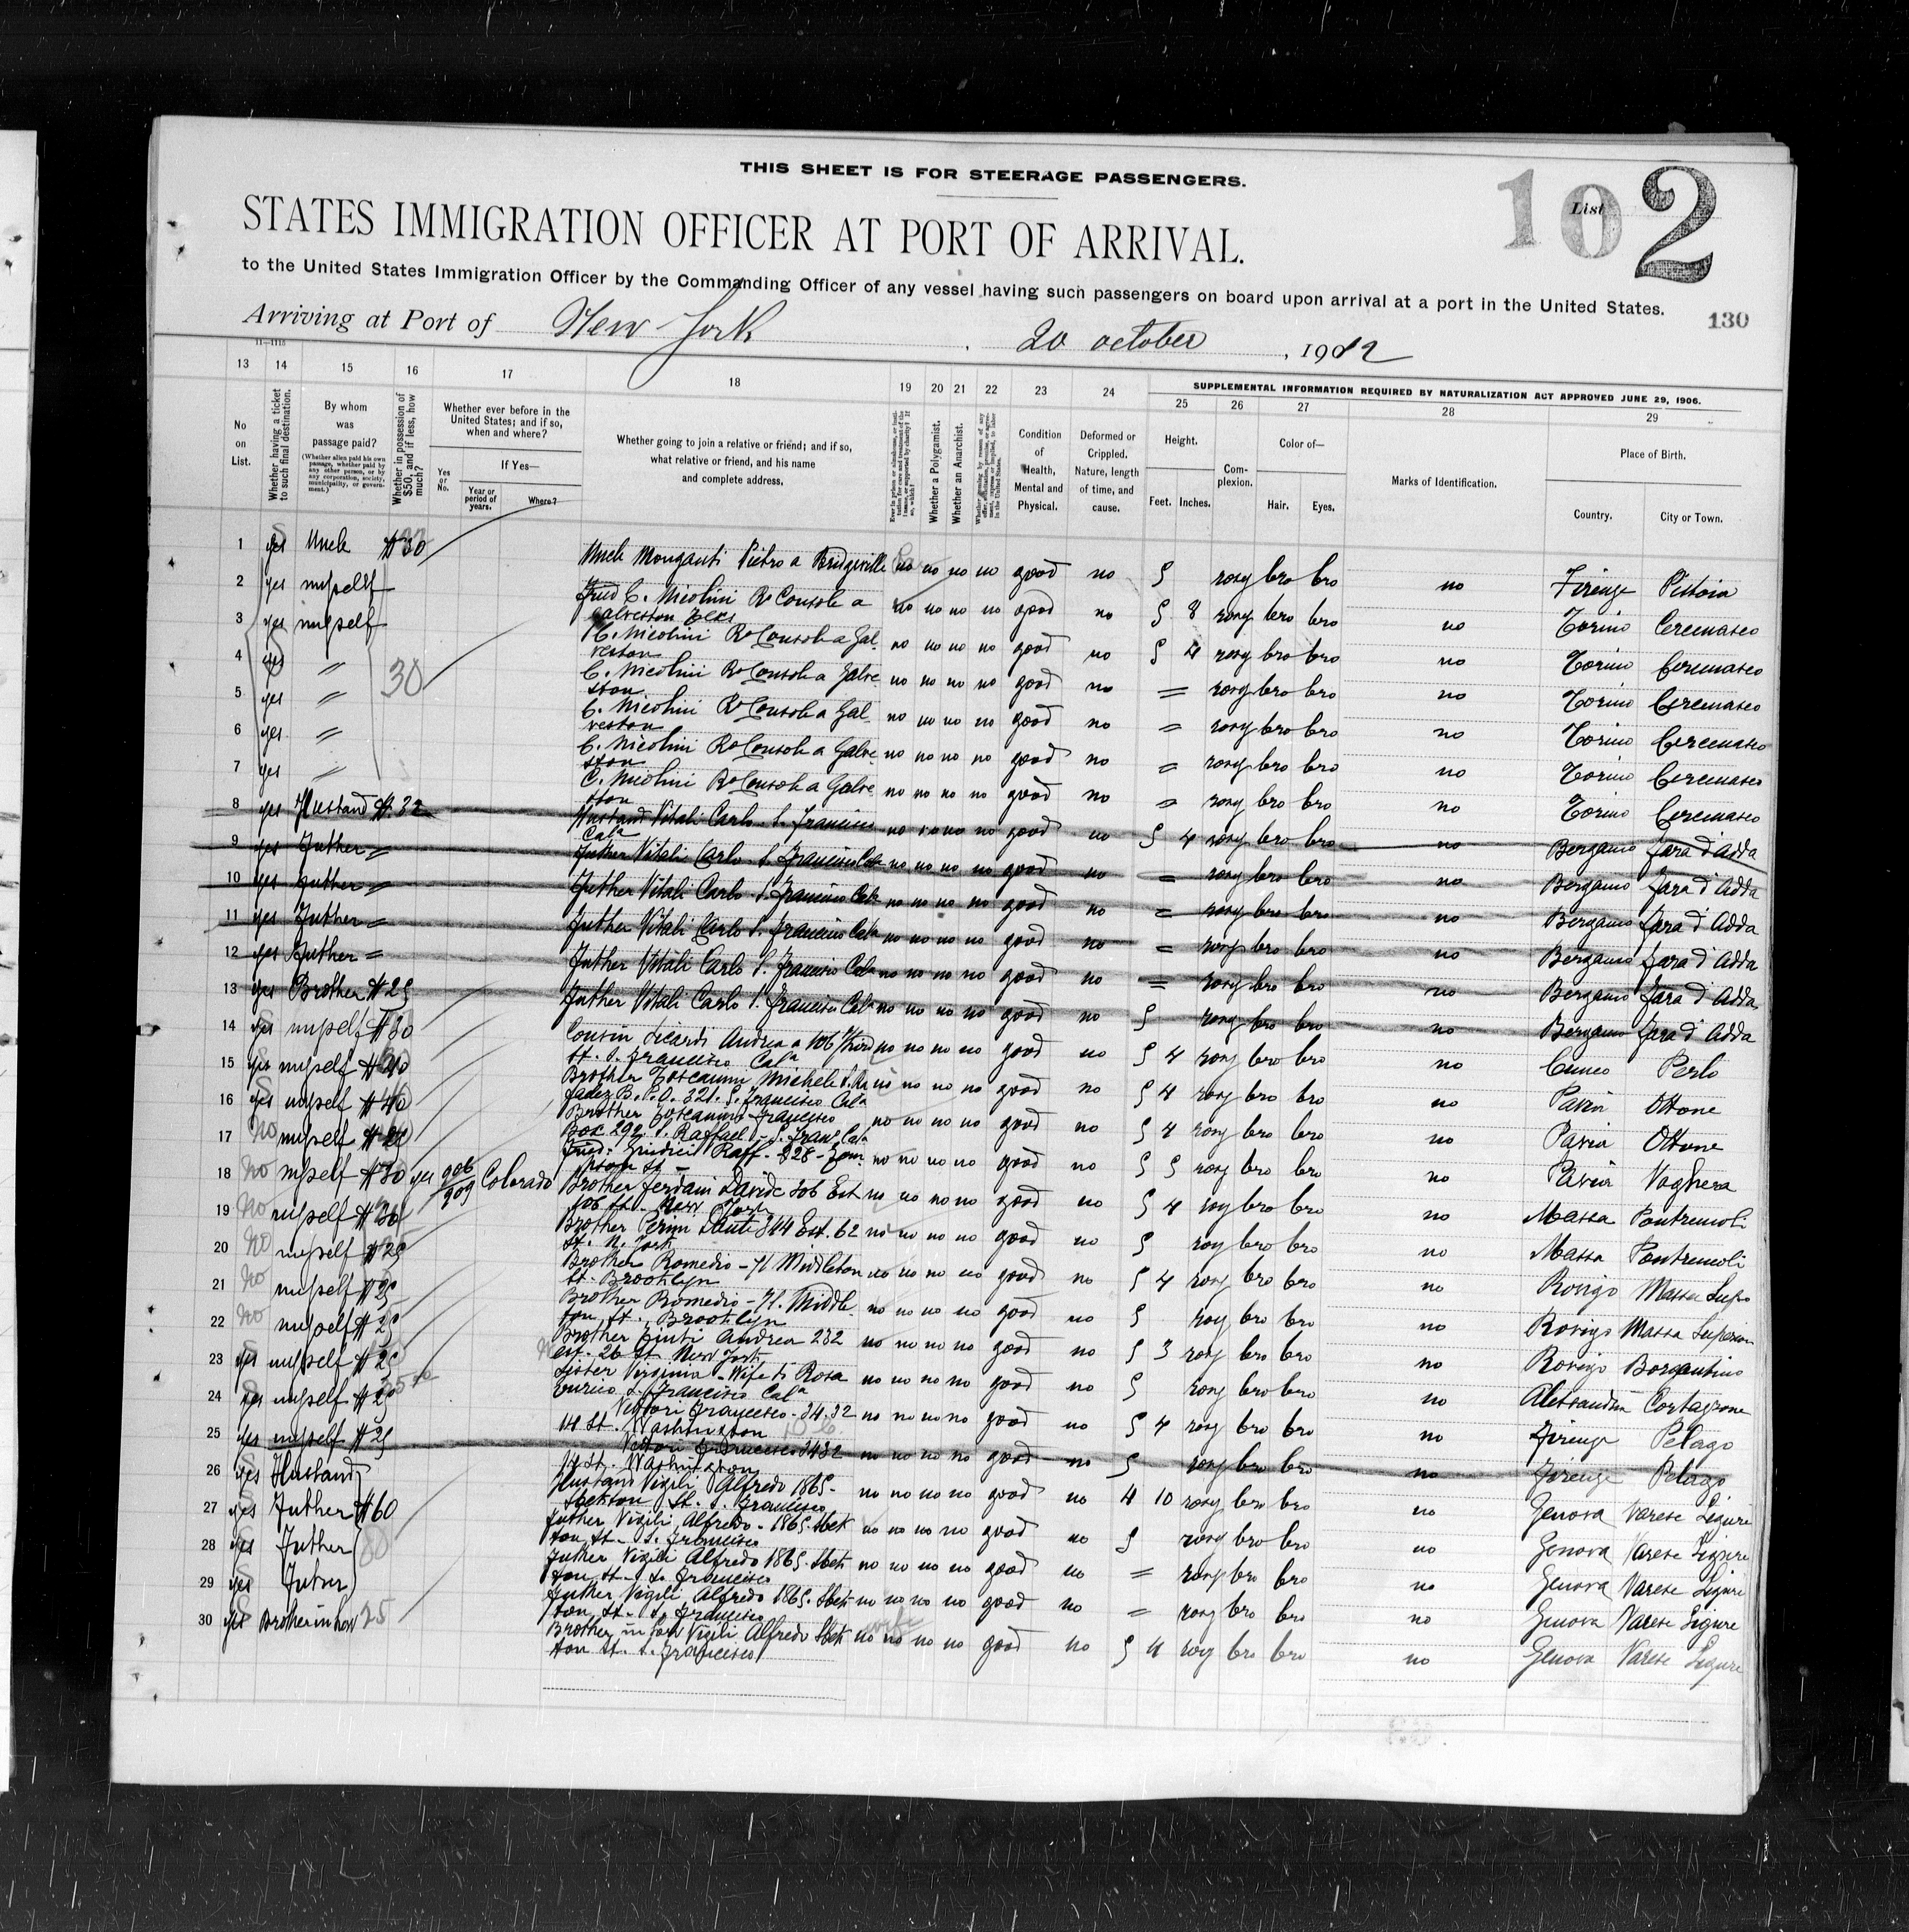 THIS SHEET IS FOR STEERAGE PASSENGERS.
102
List
STATES IMMIGRATION OFFICER AT PORT OF ARRIVAL.
to the United States Immigration Officer by the Commanding Officer of any vessel having such passengers on board upon arrival at a port in the United States.
130
Arriving at Port of New York, 20 october, 1912
11—1115
13 14 15 16 17 18 19 20 21 22 23 24 SUPPLEMENTAL INFORMATION REQUIRED BY NATURALIZATION ACT APPROVED JUNE 29, 1906.
25 26 27 28 29
No on List.
Whether having a ticket to such final destination.
By whom was passage paid?
(Whether alien paid his own passage, whether paid by any other person, or by any corporation, society, municipality, or government.)
Whether in possession of $50, and if less, how much?
Whether ever before in the United States; and if so, when and where?
Yes or No.
If Yes—
Year or period of years.
Where?
Whether going to join a relative or friend; and if so, what relative or friend, and his name and complete address.
Whether a Polygamist.
Whether an Anarchist.
Condition of Health, Mental and Physical.
Deformed or Crippled. Nature, length of time, and cause.
Height.
Feet. Inches.
Complexion.
Color of—
Hair. Eyes.
Marks of Identification.
Place of Birth.
Country. City or Town.
1 yes Uncle $30 Uncle Monganti Pietro a Bridgeville no no no no good no 5 rosy bro bro no Firenze Pistoia
2 yes myself C. Nicolini Ro Consola a Galveston no no no no good no 5 8 rosy bro bro no Torino Cercenasco
3 yes myself C. Nicolini Ro Consola a Galveston no no no no good no 5 4 rosy bro bro no Torino Cercenasco
4 yes " 30 C. Nicolini Ro Consola a Galveston no no no no good no = rosy bro bro no Torino Cercenasco
5 yes " C. Nicolini Ro Consola a Galveston no no no no good no = rosy bro bro no Torino Cercenasco
6 yes " C. Nicolini Ro Consola a Galveston no no no no good no = rosy bro bro no Torino Cercenasco
7 yes " C. Nicolini Ro Consola a Galveston no no no no good no = rosy bro bro no Torino Cercenasco
8 yes Husband $.32 Husband Vitali Carlo S. Francisco Cala no no no no good no 5 4 rosy bro bro no Bergamo Fara d'Adda
9 yes Futher = Futher Vitali Carlo S. Francisco Cala no no no no good no = rosy bro bro no Bergamo Fara d'Adda
10 yes Futher = Futher Vitali Carlo S. Francisco Cala no no no no good no = rosy bro bro no Bergamo Fara d'Adda
11 yes Futher = Futher Vitali Carlo S. Francisco Cala no no no no good no = rosy bro bro no Bergamo Fara d'Adda
12 yes Futher = Futher Vitali Carlo S. Francisco Cala no no no no good no = rosy bro bro no Bergamo Fara d'Adda
13 yes Brother $25 Futher Vitali Carlo S. Francisco Cala no no no no good no 5 rosy bro bro no Bergamo Fara d'Adda
14 yes myself $30 Cousin Andrea a 106 Third St. S. Francisco Cala no no no no good no 5 4 rosy bro bro no Cuneo Perlo
15 yes myself Brother Toscanini Michele B. P.O. 321. S. Francisco Cala no no no no good no 5 4 rosy bro bro no Pavia Ottone
16 yes myself $40 Brother Toscanini Francisco Box 292 S. Raffael - S. Fran. Cala no no no no good no 5 4 rosy bro bro no Pavia Ottone
17 no myself Raff - 328 - St - no no no no good no 5 5 rosy bro bro no Pavia Voghera
18 no myself $30 yes 906/909 Colorado Brother Ferdani Davide 306 Est 106 St. New York no no no no good no 5 4 rosy bro bro no Massa Pontremoli
19 no myself Brother Perini 344 Est. 62 St. N. York no no no no good no 5 rosy bro bro no Massa Pontremoli
20 no myself $25 Brother Romedio - 71 Middleton St. Brooklyn no no no no good no 5 4 rosy bro bro no Rovigo Massa Supo
21 no myself $25 Brother Romedio - 71. Middleton St., Brooklyn no no no no good no 5 rosy bro bro no Rovigo Massa Superiore
22 no myself $25 Brother Andrea 232 est. 26 St New York no no no no good no 5 3 rosy bro bro no Rovigo Bergantino
23 yes myself $25 Sister Virginia - Wife to Rosa Enrico S. Francisco Cala no no no no good no 5 rosy bro bro no Alessandria Cortazzone
24 yes myself Vettori Francesco - 3432 St. Washington no no no no good no 5 4 rosy bro bro no Firenze Pelago
25 yes myself $25 Vettori Francesco 3432 St. Washington no no no no good no 5 rosy bro bro no Firenze Pelago
26 yes Husband Husband Vigili Alfredo 1865 - Stockton St. S. Francisco no no no no good no 4 10 rosy bro bro no Genova Varese Ligure
27 yes Futher $60 Futher Vigili Alfredo - 1865 Stockton St - S. Francisco no no no no good no 5 rosy bro bro no Genova Varese Ligure
28 yes Futher Futher Vigili Alfredo 1865 Stockton St - S. Francisco no no no no good no = rosy bro bro no Genova Varese Ligure
29 yes Futher Futher Vigili Alfredo 1865 Stockton St - S. Francisco no no no no good no = rosy bro bro no Genova Varese Ligure
30 yes Brother in low 25 Brother in low Vigili Alfredo Stockton St. S. Francisco no no no no good no 5 4 rosy bro bro no Genova Varese Ligure